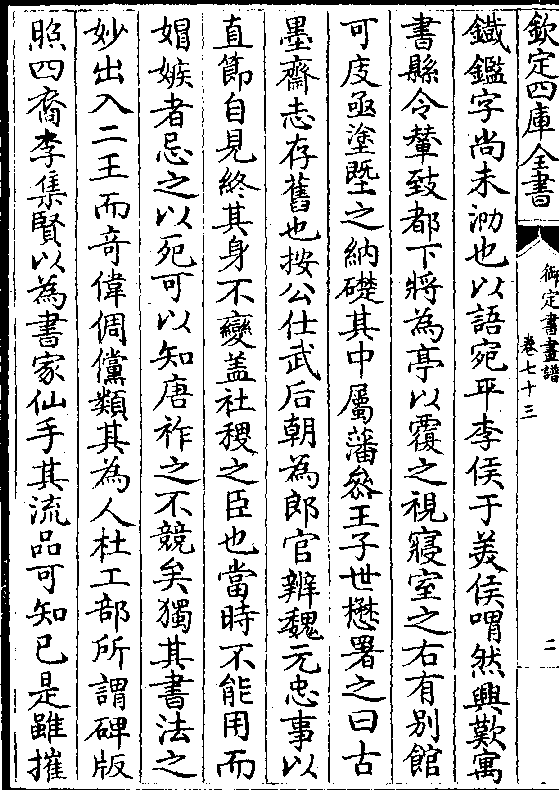 欽定四庫全書
御定書畫譜
卷七十三
二
鐵鑑字尚未泐也以語宛平李侯于美侯喟然興歎寓
書縣令輦致都下將為亭以覆之視寢室之右有别館
可度亟塗塈之納礎其中屬藩叅王子世懋署之曰古
墨齋志存舊也按公仕武后朝為郎官辨魏元忠事以
直節自見終其身不變蓋社稷之臣也當時不能用而
娼嫉者忌之以死可以知唐祚之不競矣獨其書法之
妙出入二王而奇偉倜儻類其為人杜工部所謂碑版
照四裔李集賢以為書家仙手其流品可知已是雖摧